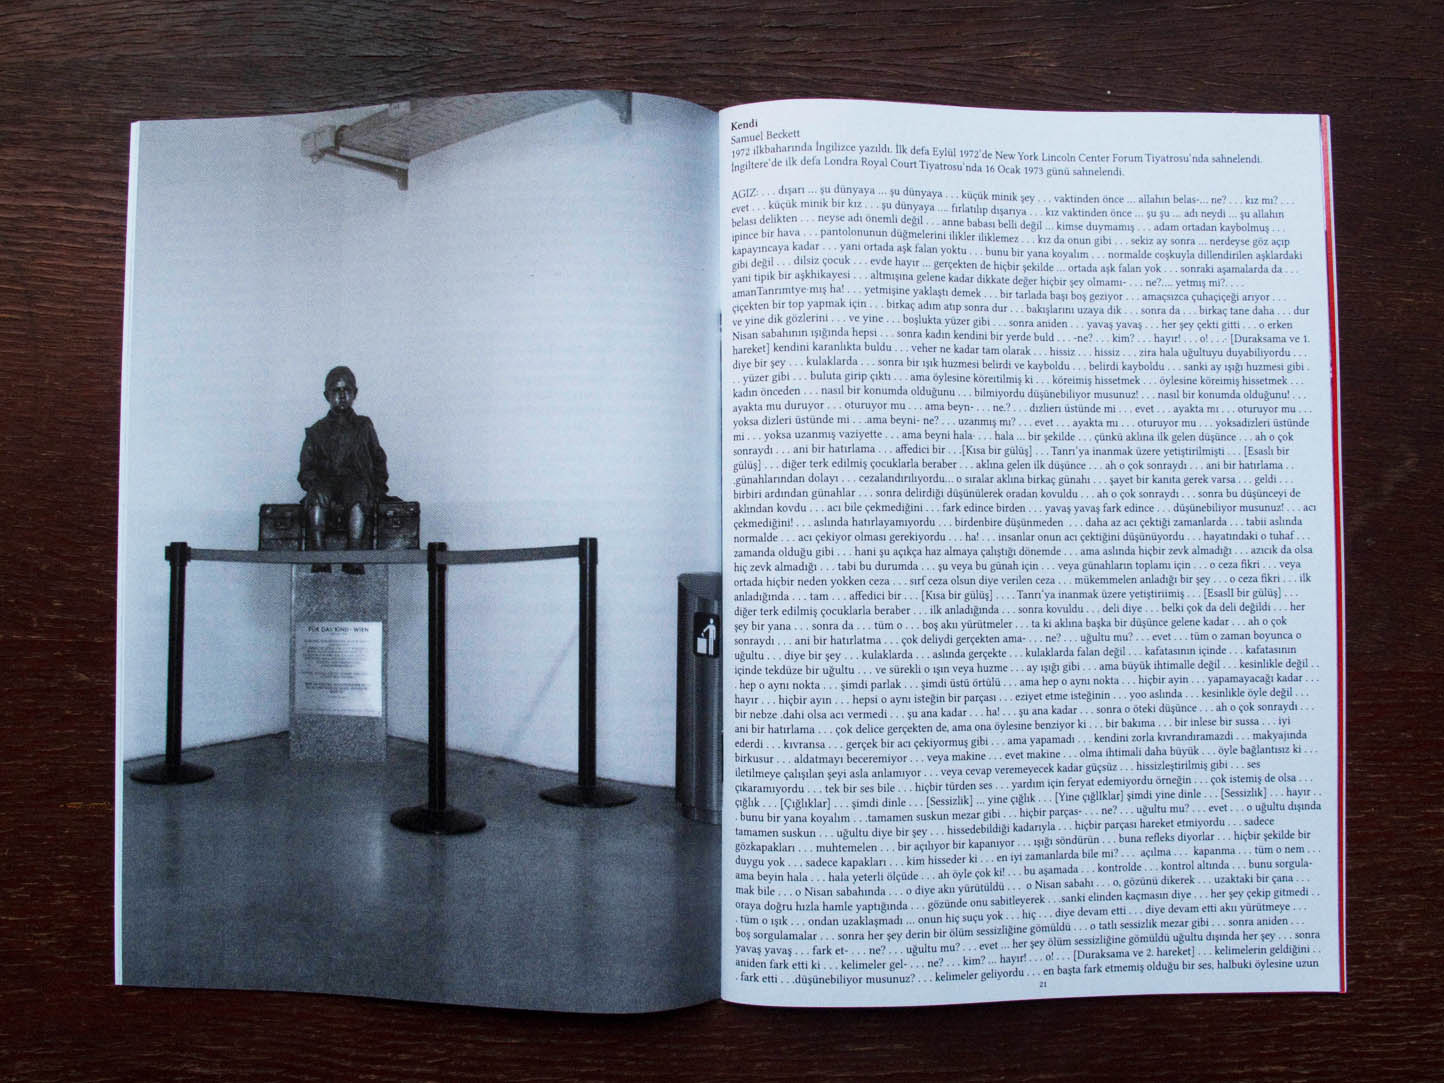 FÜR DAS KIND - WIEN
Kendi
Samuel Beckett
1972 ilkbaharında İngilizce yazıldı. İlk defa Eylül 1972'de New York Lincoln Center Forum Tiyatrosu'nda sahnelendi.
İngiltere'de ilk defa Londra Royal Court Tiyatrosu'nda 16 Ocak 1973 günü sahnelendi.
AGIZ: . . . dışarı ... şu dünyaya ... şu dünyaya . . . küçük minik şey . . . vaktinden önce ... allahın belas-... ne? . . . kız mı? . . .
evet . . . küçük minik bir kız . . . şu dünyaya .... fırlatılıp dışarıya . . . kız vaktinden önce ... şu şu ... adı neydi ... şu allahın
belası delikten . . . neyse adı önemli değil . . . anne babası belli değil ... kimse duymamış . . . adam ortadan kaybolmuş . . .
ipince bir hava . . . pantolonunun düğmelerini ilikler iliklemez . . . kız da onun gibi . . . sekiz ay sonra ... nerdeyse göz açıp
kapayıncaya kadar . . . yani ortada aşk falan yoktu . . . bunu bir yana koyalım . . . normalde coşkuyla dillendirilen aşklardaki
gibi değil . . . dilsiz çocuk . . . evde hayır ... gerçekten de hiçbir şekilde ... ortada aşk falan yok . . . sonraki aşamalarda da . . .
yani tipik bir aşkhikayesi . . . altmışına gelene kadar dikkate değer hiçbir şey olmamı- . . . ne?.... yetmış mi?. . . .
amanTanrımtye-mış ha! . . . yetmişine yaklaştı demek . . . bir tarlada başı boş geziyor . . . amaçsızca çuhaçiçeği arıyor . . .
çiçekten bir top yapmak için . . . birkaç adım atıp sonra dur . . . bakışlarını uzaya dik . . . sonra da . . . birkaç tane daha . . . dur
ve yine dik gözlerini . . . ve yine . . . boşlukta yüzer gibi . . . sonra aniden . . . yavaş yavaş . . . her şey çekti gitti . . . o erken
Nisan sabahının ışığında hepsi . . . sonra kadın kendini bir yerde buld . . . -ne? . . . kim? . . . hayır! . . . o! . . .- [Duraksama ve 1.
hareket] kendini karanlıkta buldu . . . veher ne kadar tam olarak . . . hissiz . . . hissiz . . . zira hala uğultuyu duyabiliyordu . . .
diye bir şey . . . kulaklarda . . . sonra bir ışık huzmesi belirdi ve kayboldu . . . belirdi kayboldu . . . sanki ay ışığı huzmesi gibi .
. . yüzer gibi . . . buluta girip çıktı . . . ama öylesine köreıtilmiş ki . . . köreimiş hissetmek . . . öylesine köreimiş hissetmek . . .
kadın önceden . . . nasıl bir konumda olduğunu . . . bilmiyordu düşünebiliyor musunuz! . . . nasıl bir konumda olduğunu! . . .
ayakta mu duruyor . . . oturuyor mu . . . ama beyn- . . . ne.? . . . dızlıerı üstünde mi . . . evet . . . ayakta mı . . . oturuyor mu . . .
yoksa dizleri üstünde mi . . .ama beyni- ne? . . . uzanmış mı? . . . evet . . . ayakta mı . . . oturuyor mu . . . yoksadizleri üstünde
mi . . . yoksa uzanmış vaziyette . . . ama beyni hala- . . . hala ... bir şekilde . . . çünkü aklına ilk gelen düşünce . . . ah o çok
sonraydı . . . ani bir hatırlama . . . affedici bir . . .[Kısa bir gülüş] . . . Tanrı'ya inanmak üzere yetiştirilmişti . . . [Esaslı bir
gülüş] . . . diğer terk edilmiş çocuklarla beraber . . . aklına gelen ilk düşünce . . . ah o çok sonraydı . . . ani bir hatırlama . .
.günahlarından dolayı . . . cezalandırılıyordu... o sıralar aklına birkaç günahı . . . şayet bir kanıta gerek varsa . . . geldi . . .
birbiri ardından günahlar . . . sonra delirdiği düşünülerek oradan kovuldu . . . ah o çok sonraydı . . . sonra bu düşünceyi de
aklından kovdu . . . acı bile çekmediğini . . . fark edince birden . . . yavaş yavaş fark edince . . . düşünebiliyor musunuz! . . . acı
çekmediğini! . . . aslında hatırlayamıyordu . . . birdenbire düşünmeden . . . daha az acı çektiği zamanlarda . . . tabii aslında
normalde . . . acı çekiyor olması gerekiyordu . . . ha! . . . insanlar onun acı çektiğini düşünüyordu . . . hayatındaki o tuhaf . . .
zamanda olduğu gibi . . . hani şu açıkça haz almaya çalıştığı dönemde . . . ama aslında hiçbir zevk almadığı . . . azıcık da olsa
hiç zevk almadığı . . . tabi bu durumda . . . şu veya bu günah için . . . veya günahların toplamı için . . . o ceza fikri . . . veya
ortada hiçbir neden yokken ceza . . . sırf ceza olsun diye verilen ceza . . . mükemmelen anladığı bir şey . . . o ceza fikri . . . ilk
anladığında . . . tam . . . affedici bir . . . [Kısa bir gülüş] . . . Tanrı'ya inanmak üzere yetiştiriimiş . . . [Esasll bir gülüş] . . .
diğer terk edilmiş çocuklarla beraber . . . ilk anladığında . . . sonra kovuldu . . . deli diye . . . belki çok da deli değildi . . . her
şey bir yana . . . sonra da . . . tüm o . . . boş akıı yürütmeler . . . ta ki aklına başka bir düşünce gelene kadar . . . ah o çok
sonraydı . . . ani bir hatırlatma . . . çok deliydi gerçekten ama- . . . ne? . . . uğultu mu? . . . evet . . . tüm o zaman boyunca o
uğultu . . . diye bir şey . . . kulaklarda . . . aslında gerçekte . . . kulaklarda falan değil . . . kafatasının içinde . . . kafatasının
içinde tekdüze bir uğultu . . . ve sürekli o ışın veya huzme . . . ay ışığı gibi . . . ama büyük ihtimalle değil . . . kesinlikle değil . .
. hep o aynı nokta . . . şimdi parlak . . . şimdi üstü örtülü . . . ama hep o aynı nokta . . . hiçbir ayin . . . yapamayacağı kadar . . .
hayır . . . hiçbir ayın . . . hepsi o aynı isteğin bir parçası . . . eziyet etme isteğinin . . . yoo aslında . . . kesinlikle öyle değil . . .
bir nebze .dahi olsa acı vermedi . . . şu ana kadar . . . ha! . . . şu ana kadar . . . sonra o öteki düşünce . . . ah o çok sonraydı . . .
ani bir hatırlama . . . çok delice gerçekten de, ama ona öylesine benziyor ki . . . bir bakıma . . . bir inlese bir sussa . . . iyi
ederdi . . . kıvransa . . . gerçek bir acı çekiyormuş gibi . . . ama yapamadı . . . kendini zorla kıvrandıramazdi . . . makyajında
birkusur . . . aldatmayı beceremiyor . . . veya makine . . . evet makine . . . olma ihtimali daha büyük . . . öyle bağlantısız ki . . .
iletilmeye çalışılan şeyi asla anlamıyor . . . veya cevap veremeyecek kadar güçsüz . . . hissizleştirilmiş gibi . . . ses
çıkaramıyordu . . . tek bir ses bile . . . hiçbir türden ses . . . yardım için feryat edemiyordu örneğin . . . çok istemiş de olsa . . .
çığlık . . . [Çığlıklar] . . . şimdi dinle . . . [Sessizlik] ... yine çığlık . . . [Yine çığllklar] şimdi yine dinle . . . [Sessizlik] . . . hayır . .
. bunu bir yana koyalım . . .tamamen suskun mezar gibi . . . hiçbir parças- . . . ne? . . . uğultu mu? . . . evet . . . o uğultu dışında
tamamen suskun . . . uğultu diye bir şey . . . hissedebildiği kadarıyla . . . hiçbir parçası hareket etmiyordu . . . sadece
gözkapakları . . . muhtemelen . . . bir açılıyor bir kapanıyor . . . ışığı söndürün . . . buna refleks diyorlar . . . hiçbir şekilde bir
duygu yok . . . sadece kapakları . . . kim hisseder ki . . . en iyi zamanlarda bile mi? . . . açılma . . . kapanma . . . tüm o nem . . .
ama beyin hala . . . hala yeterli ölçüde . . . ah öyle çok ki! . . . bu aşamada . . . kontrolde . . . kontrol altında . . . bunu sorgula-
mak bile . . . o Nisan sabahında . . . o diye akıı yürütüldü . . . o Nisan sabahı . . . o, gözünü dikerek . . . uzaktaki bir çana . . .
oraya doğru hızla hamle yaptığında . . . gözünde onu sabitleyerek . . .sanki elinden kaçmasın diye . . . her şey çekip gitmedi . .
. tüm o ışık . . . ondan uzaklaşmadı ... onun hiç suçu yok . . . hiç . . . diye devam etti . . . diye devam etti akıı yürütmeye . . .
boş sorgulamalar . . . sonra her şey derin bir ölüm sessizliğine gömüldü . . . o tatlı sessizlik mezar gibi . . . sonra aniden . . .
yavaş yavaş . . . fark et- . . . ne? . . . uğultu mu? . . . evet ... her şey ölüm sessizliğine gömüldü uğultu dışında her şey . . . sonra
aniden fark etti ki . . . kelimeler gel- . . . ne? . . . kim? ... hayır! . . . o! . . . [Duraksama ve 2. hareket] . . . kelimelerin geldiğini . .
. fark etti . . .düşünebiliyor musunuz? . . . kelimeler geliyordu . . . en başta fark etmemiş olduğu bir ses, halbuki öylesine uzun
21